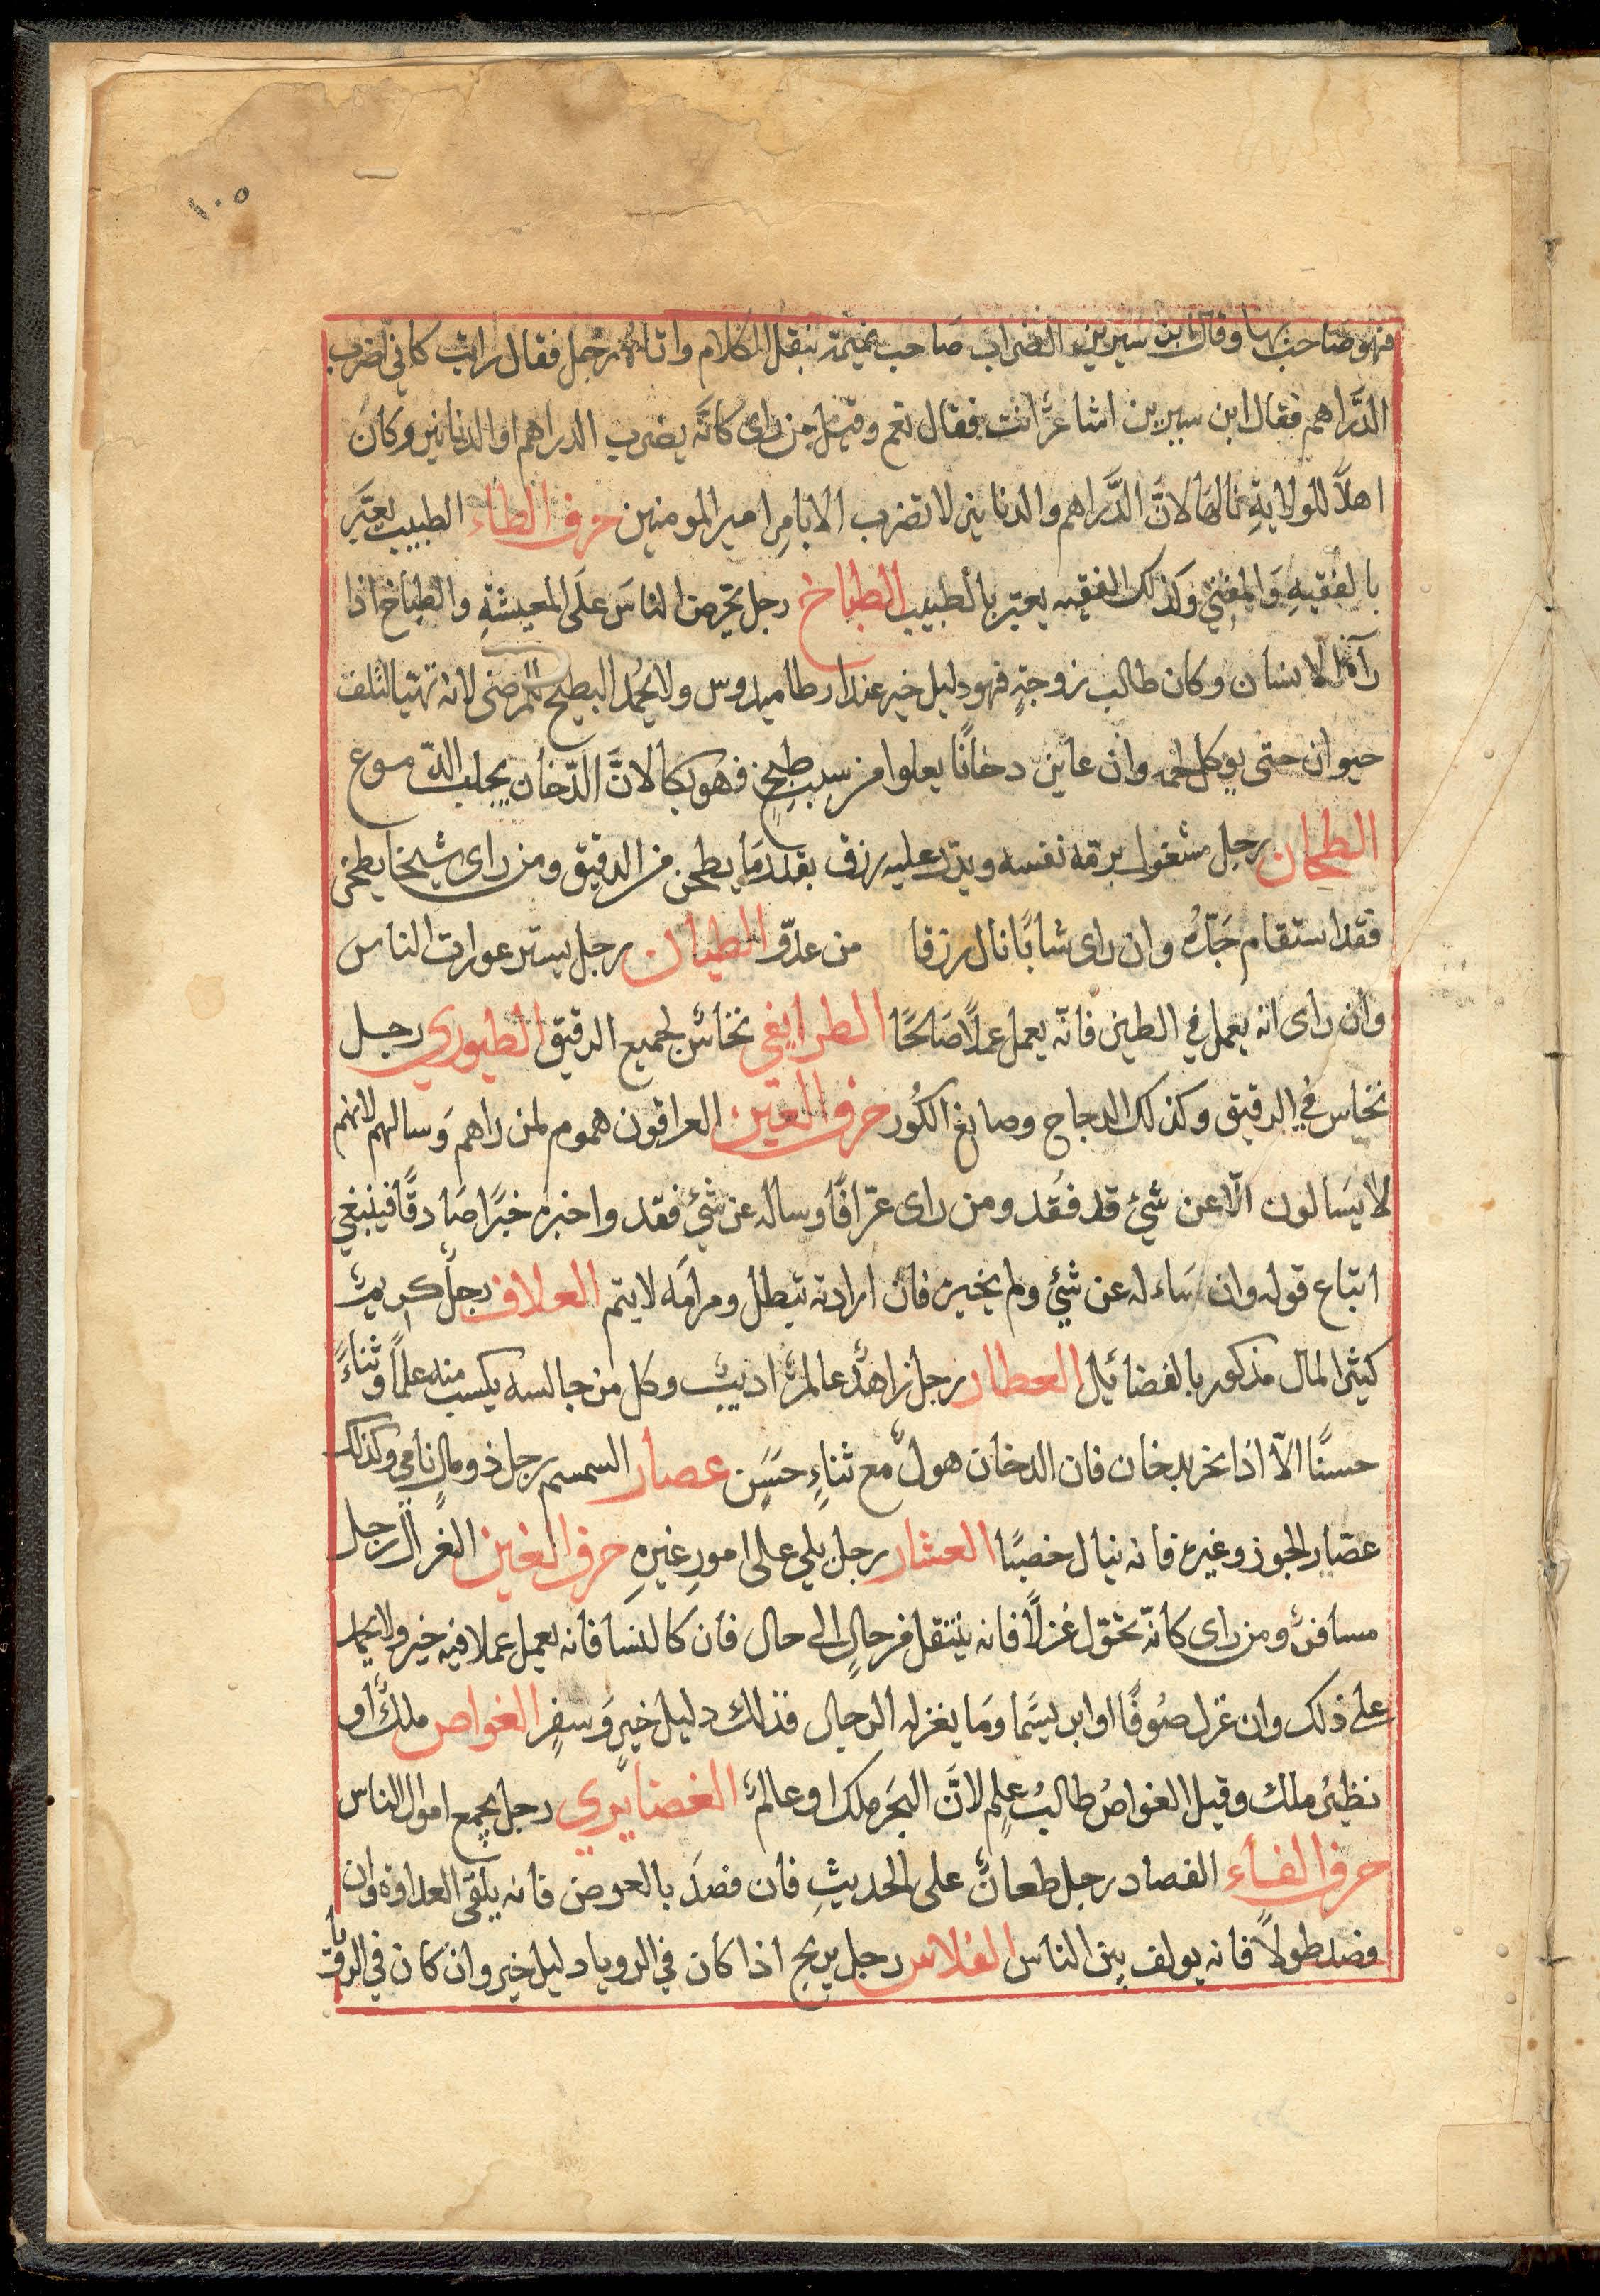 ١٠٥
فهو صاحبها وقال ابن سيرين الضراب صاحب نميمة ينقل الكلام واتاه رجل فقال رايت كاني اضرب
الدَّراهم فقال ابن سيرين اشاعرٌ انت فقال نعم وقيل من راى كانَّه يضرب الدراهم او الدنانير وكان
اهلاً للولايةِ نالها لانَّ الدَّراهم والدنانير لا تضرب الا بامرِ امير المومنين حرف الطاء الطبيب يعبَّر
بالفقيهِ وَالمفتي وكذلك الفقيه يعبّر بالطبيب الطباخ رجل يحرص الناسَ علَى المعيشةِ والطباخ اذا
رآهُ الانسان وكان طالب زوجةٍ فهو دليل خير عند ارطاميدوس ولا يحمُد الطبيخ للمرضى لانه تهيا لتلف
حيوان حتى يوكل لحمه وان عاين دخانًا يعلوا من سبب طبخٍ فهو بكا لانَّ الدّخان يجلب الدّموع
الطحان رجل مشغول برمّة نفسه ويدرّ عليه رزق بقدر مَا يطحن من الدقيق ومن راى شيخا يطحن
فقد استقام جَدّهُ وان راى شابًا نال رزقا من عدوّ الطيان رجل يستر عورات الناس
وان راى انه يعمل في الطين فانّه يعمل عملاً صَالحًا الطرايفي نخاسٌ لجميع الرقيق الطيوري رجل
نخاس في الرقيق وكذلك الدجاج وصايغ الكُور حرف العين العرافون هموم لمن راهم وَسالهم لانهم
لا يَسالون الّا عن شيْ قد فُقد ومن راى عرّافًا وساله عن شيْ فقد واخبره خبرًا صَادقًا فينبغي
اتباع قوله وان سَاءله عن شيْ ولم يخبره فان ارادته تبطل ومرامَه لا يتم العلاف رجلٌ كريمٌ
كثير المال مذكور بالفضائيل العطار رجل زاهدٌ عالمٌ اديبٌ وكل من جالسه يكسب منه علمًا وثناءً
حسنًا الاّ اذا بخر بدخان فان الدخان هولٌ مع ثناءٍ حسَنٍ عصار السمسم رجل ذو مالٍ نامي وكذلك
عصّار الجوز وغيره فانه ينال خصبًا العشار رجل يلي على امورِ غيرهِ حرف الغين الغزال رجل
مسافرٌ ومن راى كانّه تحوّل غزلاً فانه ينتقل من حالٍ الى حال فان كالنسا فانه يعمل عملا فيه خير ولا يحمد
على ذلك وان غزل صُوفًا او ابريسَما ومَا يغزله الرجال فذلك دليل خيرٍ وَسفرٍ الغواص ملكٌ او
نظيرُ ملك وقيل الغواصُ طالبُ علمٍ لانَّ البحَر ملك او عالمٌ الغضايري رجل يجمع اموال الناس
حرف الفاء الفصاد رجل طعانٌ على الحديثِ فان فصدَ بالعرض فانه يلقى العداوة وان
فصد طولاً فانه يولف بين الناس الفلاس رجل يربح اذا كان في الرويا دليل خير وان كان في الرويا